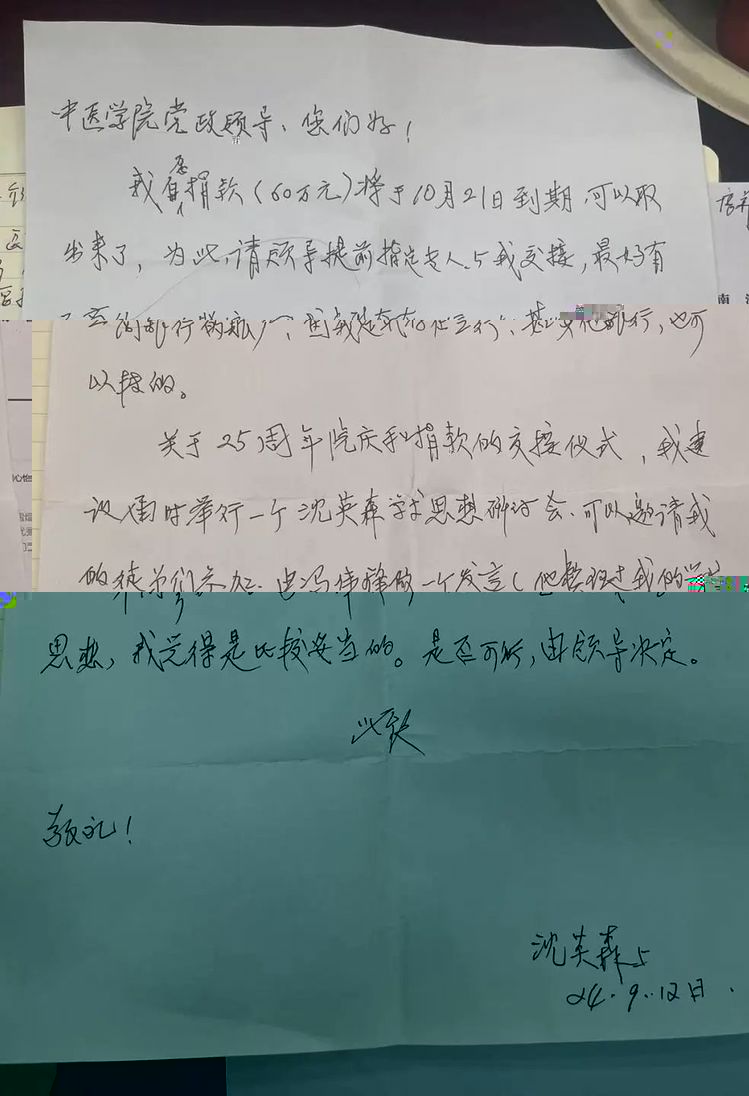 中医学院党政领导、您们好!
我自愿捐款(60万元)将于10月21日到期,可以取
出来了,为此,请领导提前指定专人与我交接,最好有
银行,也可
以转的。
关于25周年院庆和捐款的交接仪式,我建
议同时举行一个沈英森学术思想研讨会、可以邀请我
的徒弟们参加、由冯做一个发言(他整理过我的学术
思想,我觉得是比较妥当的。是否可行,由领导决定。
此致
敬礼!
沈英森上
24.9.12日.
南